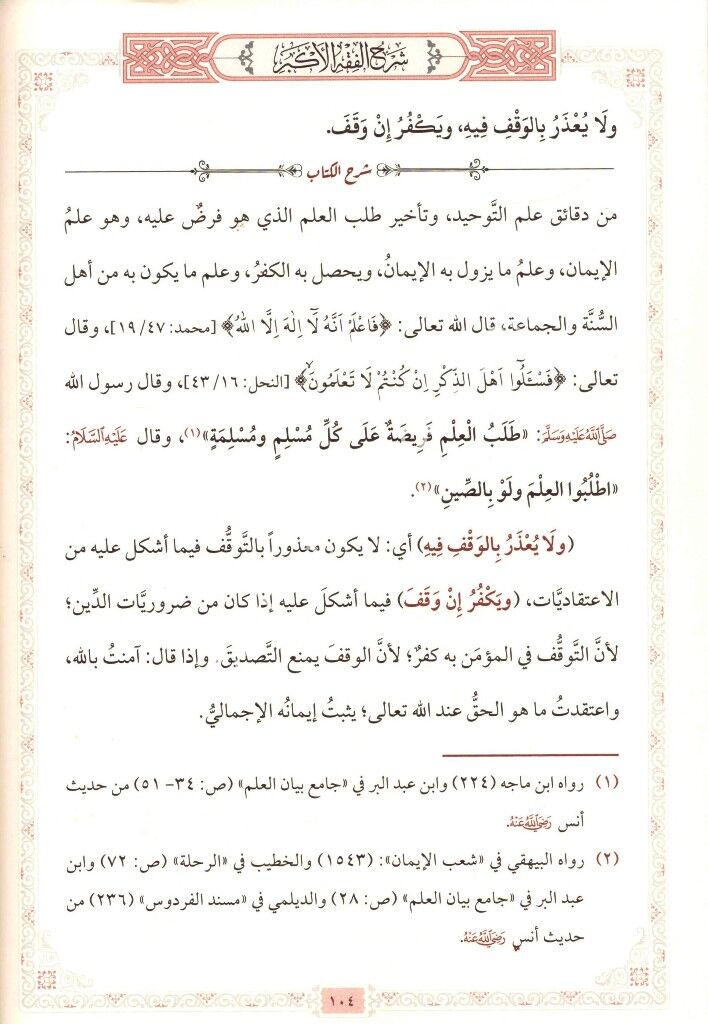 شرح الفقه الأكبر
ولَا يُعْذَرُ بِالوَقْفِ فِيهِ، ويَكْفُرُ إِنْ وَقَفَ.
شرح الكتاب
من دقائق علم التَّوحيد، وتأخير طلب العلم الذي هو فرضٌ عليه، وهو علمُ
الإيمان، وعلمُ ما يزول به الإيمانُ، ويحصل به الكفرُ، وعلم ما يكون به من أهل
السُّنَّة والجماعة، قال الله تعالى: ﴿فَاعْلَمْ اَنَّهُ لَٓا اِلٰهَ اِلَّا اللّٰهُ﴾ [محمد: ١٩/٤٧]، وقال
تعالى: ﴿فَسْـَٔلُٓوا اَهْلَ الذِّكْرِ اِنْ كُنْتُمْ لَا تَعْلَمُونَۙ﴾ [النحل: ٤٣/١٦]، وقال رسول الله
صَلَّى اللَّهُ عَلَيْهِ وَسَلَّمَ: «طَلَبُ الْعِلْمِ فَرِيضَةٌ عَلَى كُلِّ مُسْلِمٍ ومُسْلِمَةٍ»(١)، وقال عَلَيْهِ السَّلَامُ:
«اطْلُبُوا العِلْمَ ولَوْ بِالصِّينِ»(٢).
(ولَا يُعْذَرُ بِالوَقْفِ فِيهِ) أي: لا يكون معذوراً بالتَّوقُّف فيما أشكل عليه من
الاعتقاديَّات، (ويَكْفُرُ إِنْ وَقَفَ) فيما أشكلَ عليه إذا كان من ضروريَّات الدِّين؛
لأنَّ التَّوقُّف في المؤمَن به كفرٌ؛ لأنَّ الوقفَ يمنع التَّصديقَ. وإذا قال: آمنتُ بالله،
واعتقدتُ ما هو الحقُّ عند الله تعالى؛ يثبتُ إيمانُه الإجماليُّ.
(١) رواه ابن ماجه (٢٢٤) وابن عبد البر في «جامع بيان العلم» (ص: ٣٤- ٥١) من حديث
أنس رَضِيَ اللَّهُ عَنْهُ.
(٢) رواه البيهقي في «شعب الإيمان»: (١٥٤٣) والخطيب في «الرحلة» (ص: ٧٢) وابن
عبد البر في «جامع بيان العلم» (ص: ٢٨) والديلمي في «مسند الفردوس» (٢٣٦) من
حديث أنس رَضِيَ اللَّهُ عَنْهُ.
١٠٤